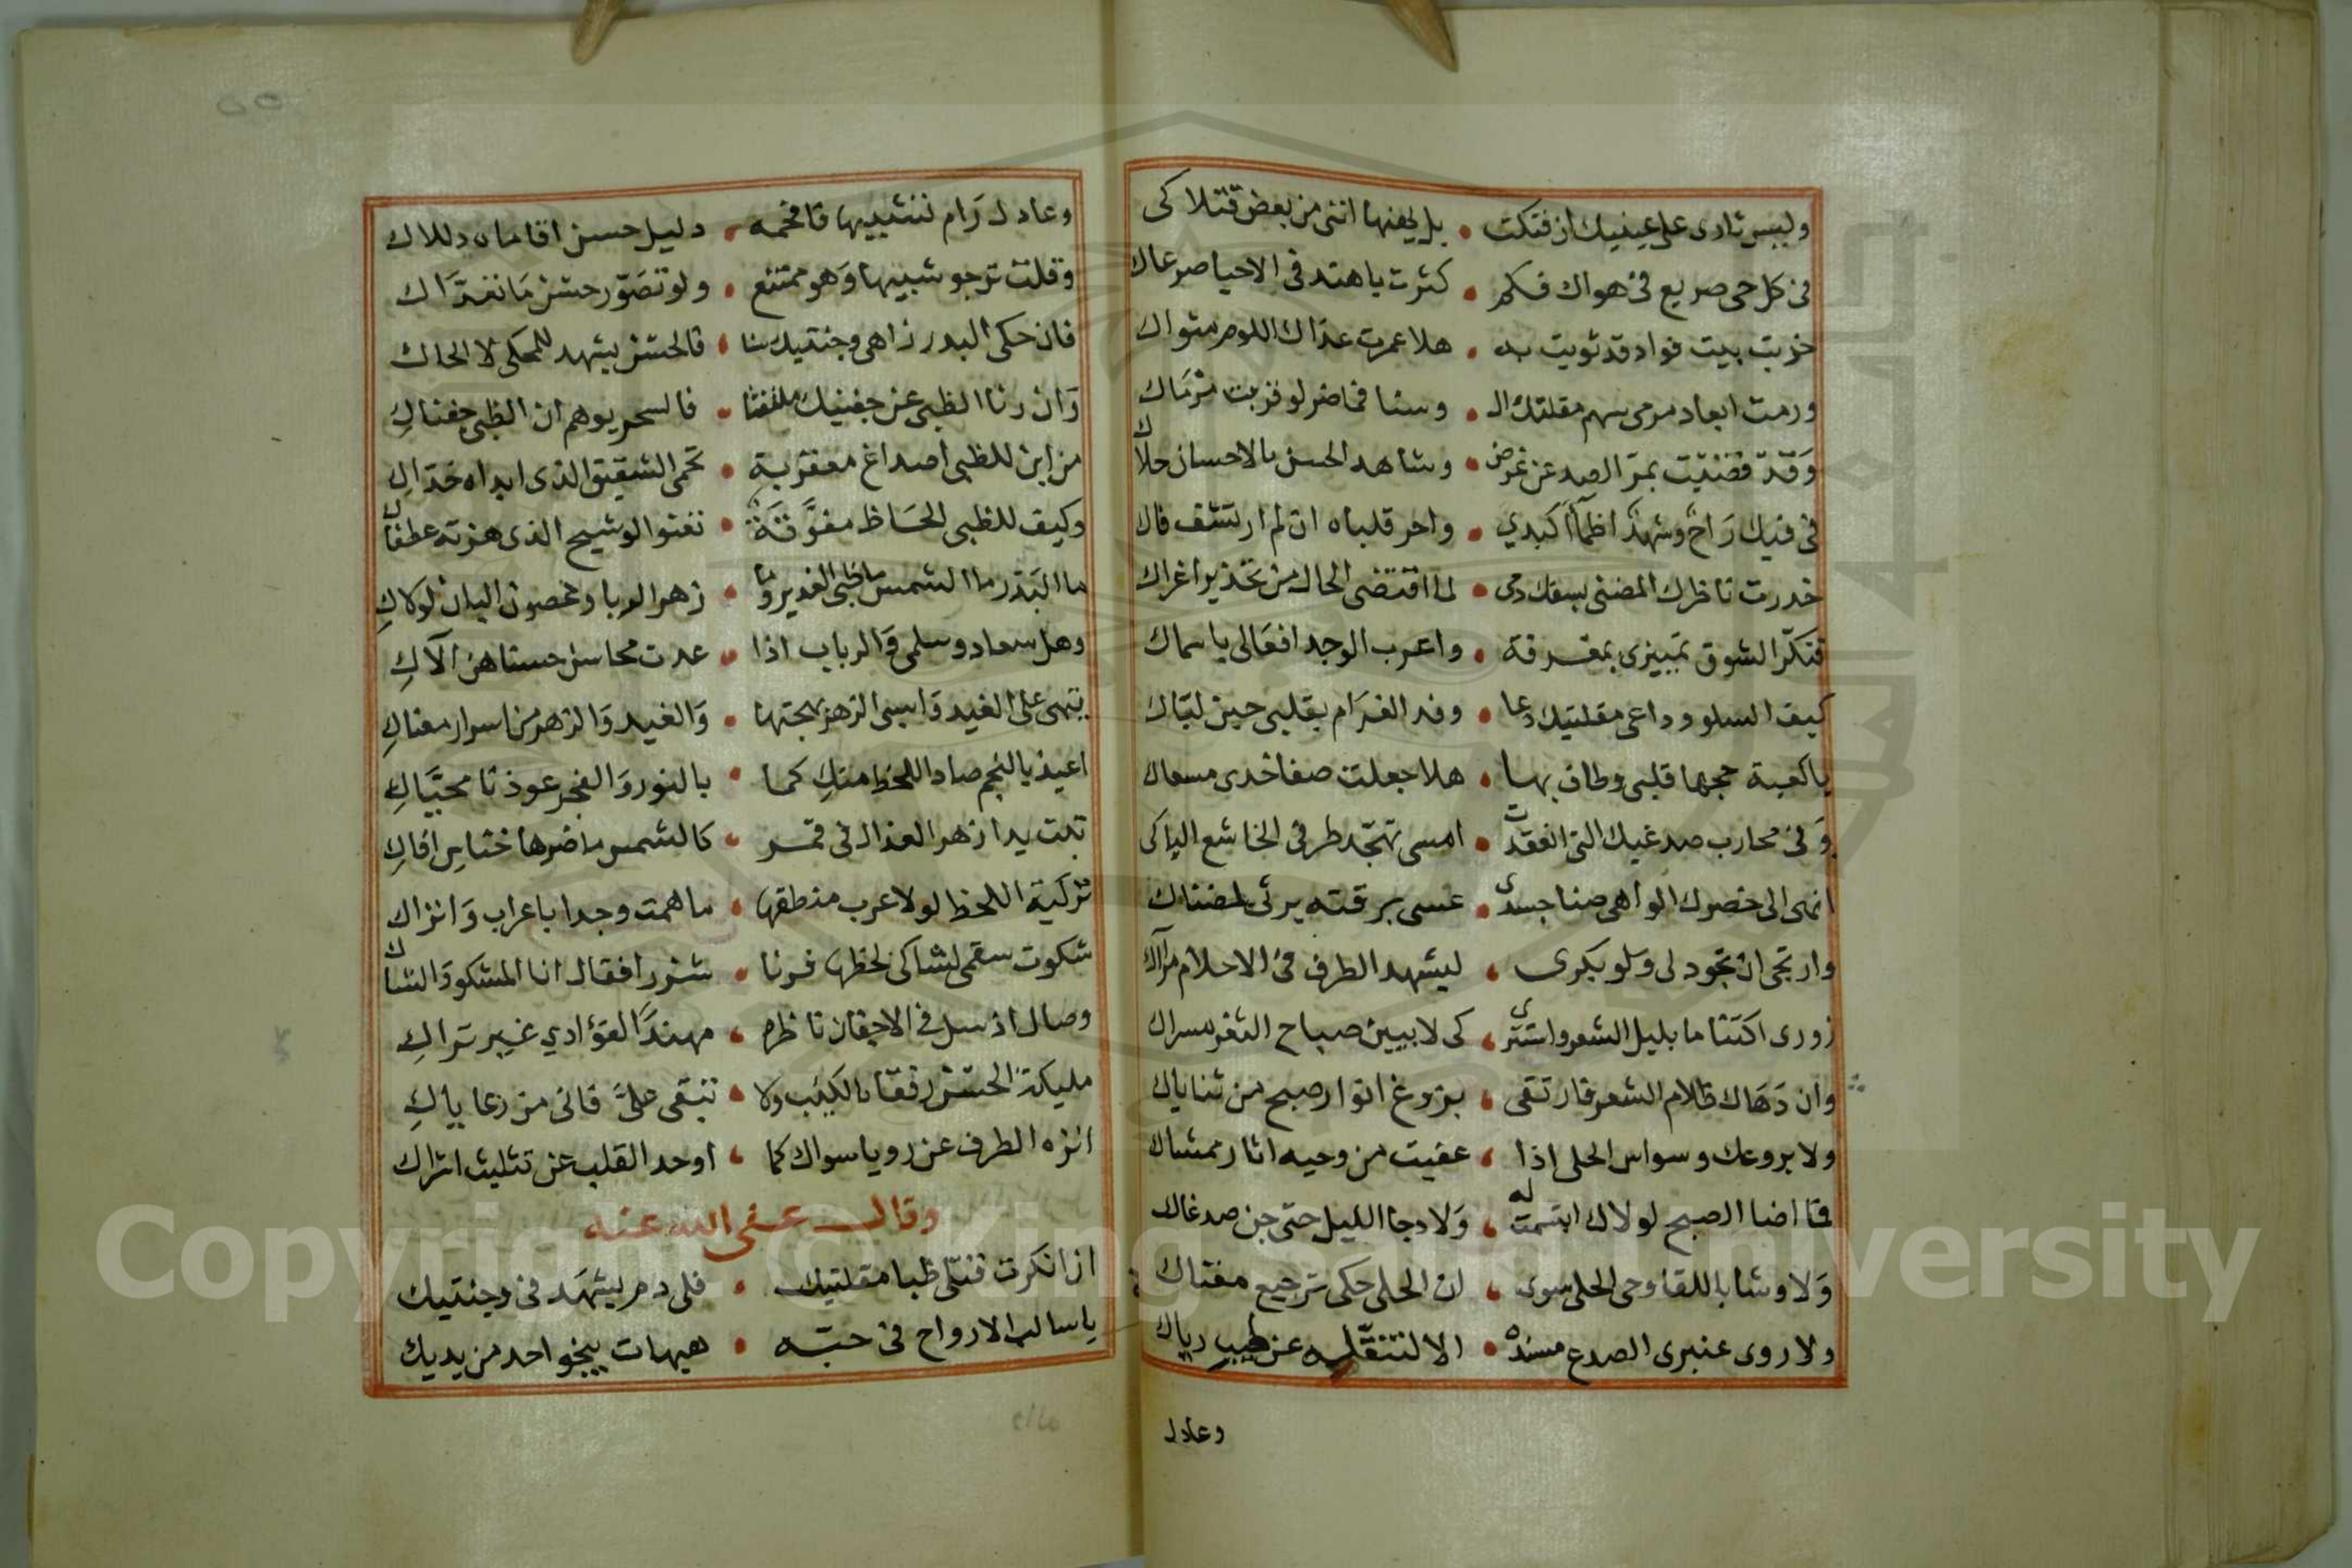 وليس ثارى على عينيك ان فتكت • بل يهنها اننى من بعض قتلاكى
فى كل حى صريع فى هواك فكم • كثرت يا هند فى الاحيا صرعاك
خربت بيت فواد قد ثويت به • هلا عمرت عداك اللوم مثواك
ورمت ابعاد مرمى سهم مقلتك ال • وسنا فما ضر لو قربت مرماك
وقد قضيت بمر الصد عن غرض • وشاهد الحسن بالاحسان حلاك
فى فيك راح وشهد اظمآ كبدي • واحر قلباه ان لم ارتشف فاك
خدرت ناظرك المضنى بسفك دمى • لما اقتضى الحال من تحذير اغراك
فنكر الشوق تمييزى بمعرفة • واعرب الوجد افعالى باسماك
كيف السلو وداعى مقلتيك دعا • وفد الغرام بقلبى حين لباك
يا كعبة حجها قلبى وطاف بها • هلا جعلت صفا خدى مسعاك
وفى محارب صدغيك التى انعقدت • امسى تهجد طرفى الخاشع الباكى
انهى الى خصرك الواهى ضنا جسدى • عسى برقته يرثى لمضناك
وارتجى ان تجود لى ولو بكرى • ليشهد الطرف فى الاحلام مرآك
زورى اكتتاما بليل الشعر واستترى • كى لا يبين صباح الثغر مسراك
وان دهاك ظلام الشعر فارتقى • بزوغ انوار صبح من ثناياك
ولا يروعك وسواس الحلى اذا • عفيت من وحيه اثار ممشاك
فما اضا الصبح لولاك ابتسمت له • ولا دجا الليل حتى جن صدغاك
ولا وشا باللقا وحى الحلى سوى • ان الحلى حكى ترجيع مغناك
ولا روى عنبرى الصدغ مسنده • الا لتنقله عن طيب رياك
وعادل
وعادل رام تشبيها فافحمه • دليل حسن اقاماه دلالاك
وقلت ترجو شبيها وهو ممتنع • ولو تصور حسن ما تعداك
فان حكى البدر زاهى وجنتيك سنا • فالحسن يشهد للمحكى لا الحاك
وان رنا الظبى عن جفنيك ملتفتا • فالسحر يوهم ان الظبى جفناك
من اين للظبى اصداغ معقربة • تحمى الشقيق الذى ابداه خداك
وكيف للظبى الحاظ مفوقة • تعنو الوشيح الذى هزته عطفاك
ما البدر ما الشمس ما ظبى الغدير وما • زهر الربا وغصون البان لولاك
وهل سعاد وسلمى والرباب اذا • عدت محاسن حسناهن الاك
يتهى على الغيد وانسى الزهر بهجتها • والغيد والزهر من اسرار معناك
اعيذ بالنجم صاد اللحظ منك كما • بالنور والفجر عوذنا محياك
تبت يدا زهر العذال فى قمر • كالشمس ما ضرها خناس افاك
تركية اللحظ لولا عرب منطقها • ما همت وجدا باعراب واتراك
شكوت سقمى لشاكى لحظها فرنا • شزرا فقال انا المشكو والشاك
وصال اذ سل فى الاجفان ناظره • مهندا لفؤادي غير تراك
مليكة الحسن رفقا بالكئيب ولا • تبقى على فانى من رعاياك
انزه الطرف عن رويا سواك كما • اوحد القلب عن تثليث اشراك
وقال عفى الله عنه
ان انكرت قتلى ظبا مقلتيك • فلى دم يشهد فى وجنتيك
يا سالب الارواح فى حبه • هيهات ينجو احد من يديك
Copyright © King Saud University